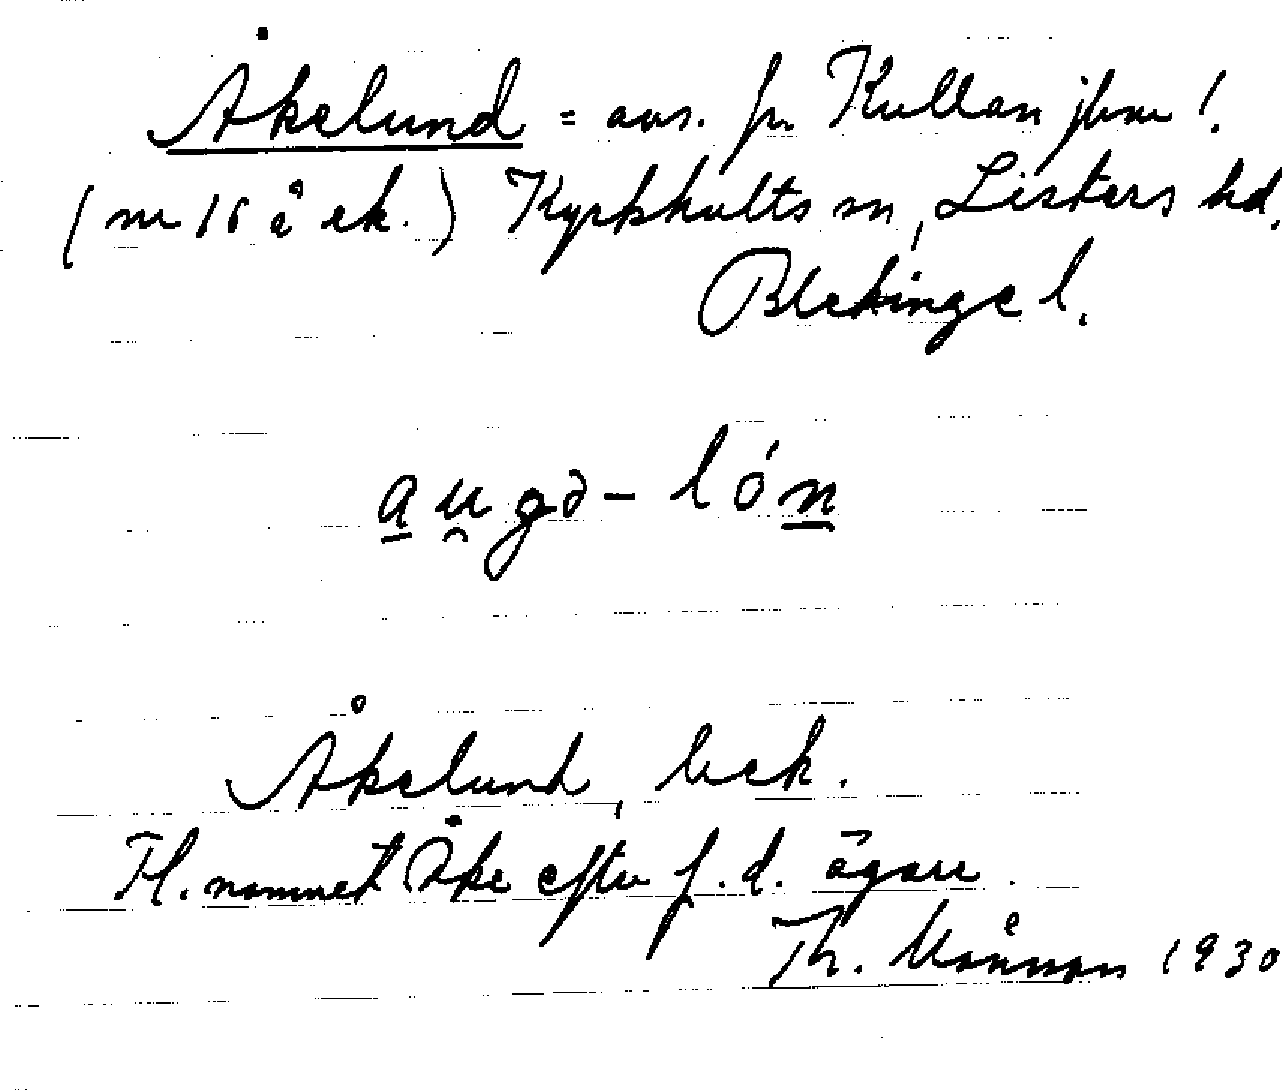 Åkelund = avs. fr. Kullan jfvm!
(nr 16 å ek.) Kyrkhults sn, Listers hd,
Blekinge l.
au̯gə-lón
Åkelund, bek.
F1. namnet Åke efter f.d. ägare.
Th. 1930